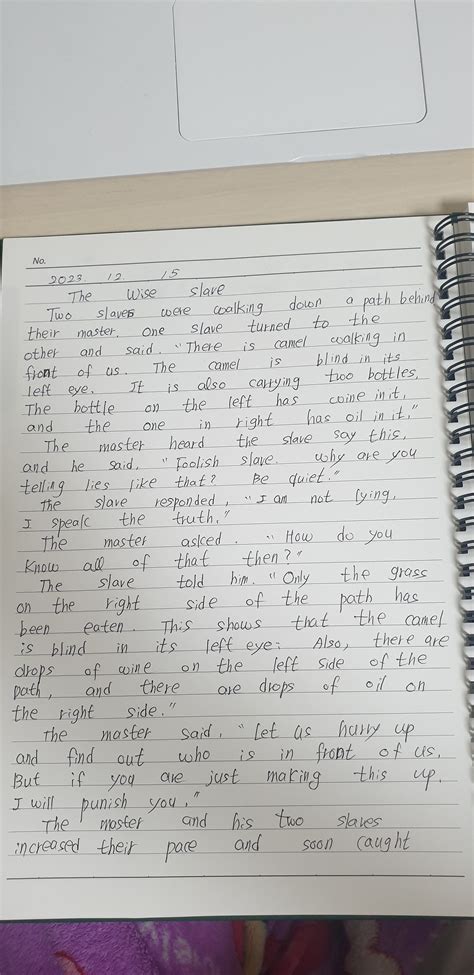 No.
2023. 12. 15
The Wise Slave
Two slaves were walking down a path behind
their master. One slave turned to the
other and said. "There is camel walking in
front of us. The camel is blind in its
left eye. It is also carrying two bottles.
The bottle on the left has wine in it,
and the one in right has oil in it."
The master heard the slave say this,
and he said, "Foolish slave. why are you
telling lies like that? Be quiet."
The slave responded, "I am not lying.
I speak the truth."
The master asked. "How do you
Know all of that then?"
The slave told him. "Only the grass
on the right side of the path has
been eaten. This shows that the camel
is blind in its left eye. Also, there are
drops of wine on the left side of the
path, and there are drops of oil on
the right side."
The master said, "Let us hurry up
and find out who is in front of us.
But if you are just making this up.
I will punish you."
The master and his two slaves
increased their pace and soon caught